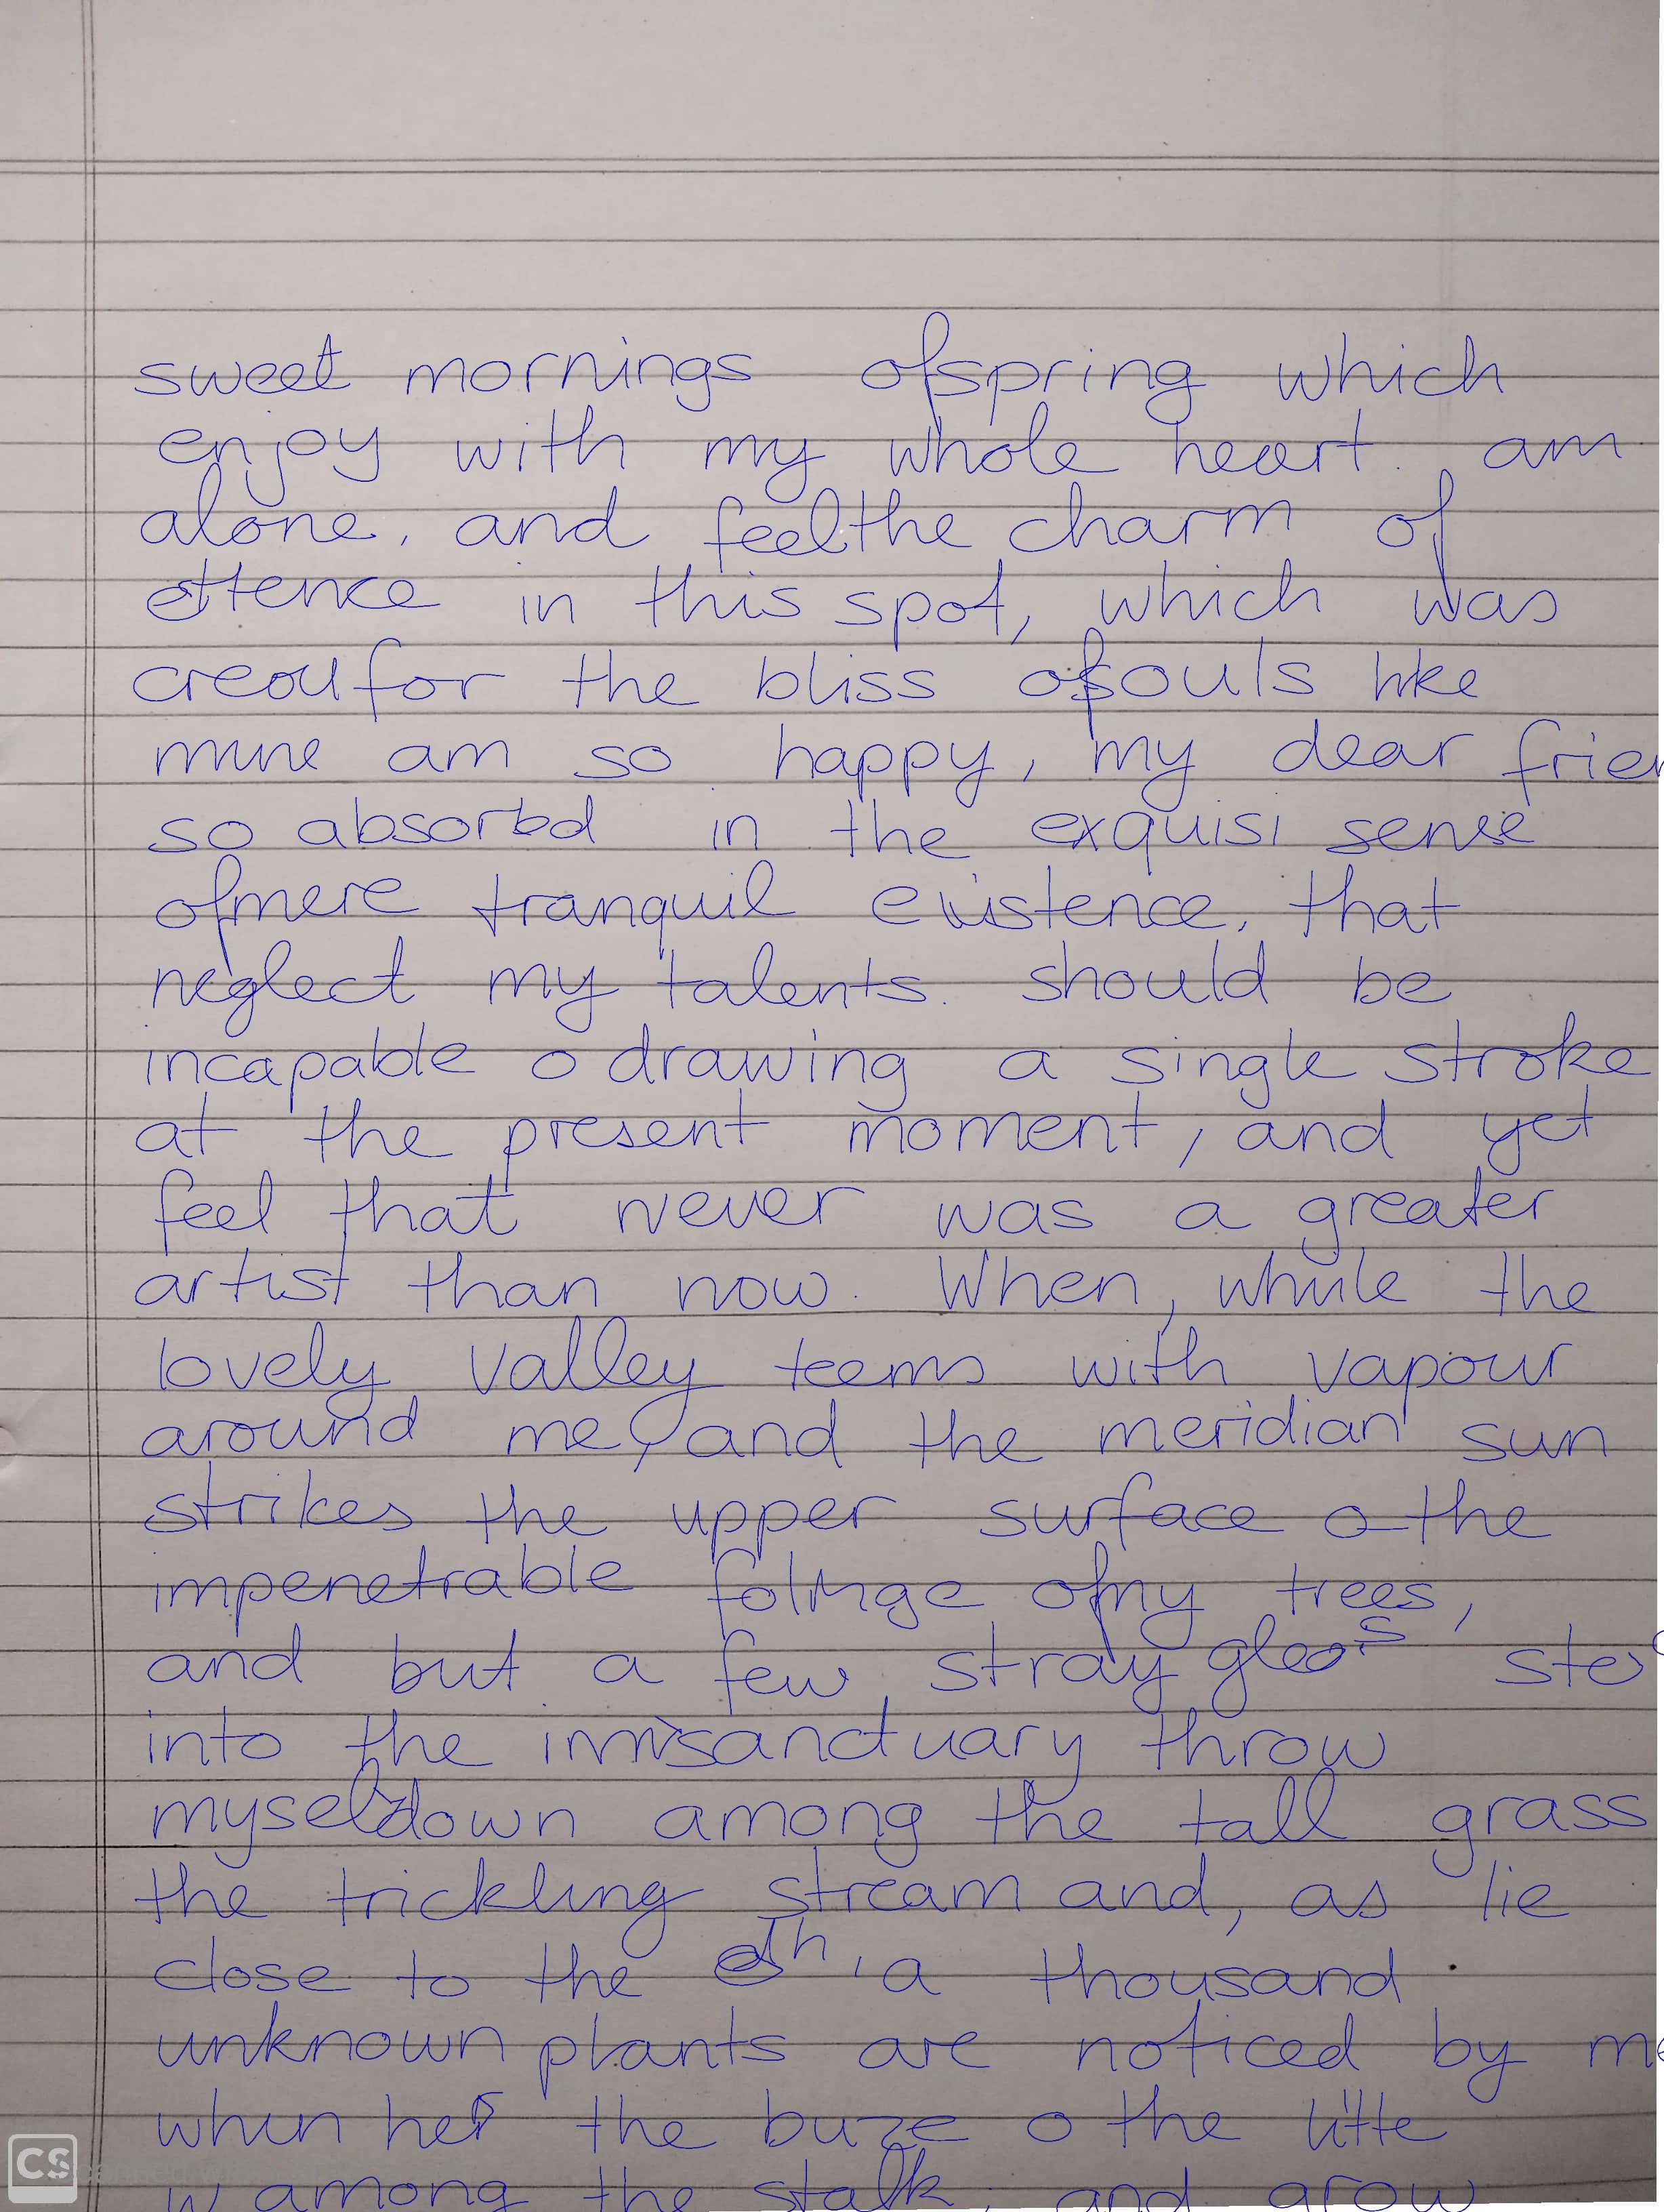 sweet mornings ofspring which
enjoy with my whole heart. am
alone, and feelthe charm of
in this spot, which was
for the bliss ofsouls like
mine am so happy, my dear frien
so absorbd in the exquisi sense
ofmere tranquil existence, that
neglect my talents. should be
incapable o drawing a single stroke
at the present moment, and yet
feel that never was a greater
artist than now. When, while the
lovely valley teems with vapour
around me, and the meridian sun
strikes the upper surface o the
impenetrable ofmy trees,
and but a few stray
into the throw
down among the tall grass
the trickling stream and, as lie
close to the , a thousand
unknown plants are noticed by me
when the buzz o the little
w among the stalk, and grow
CS